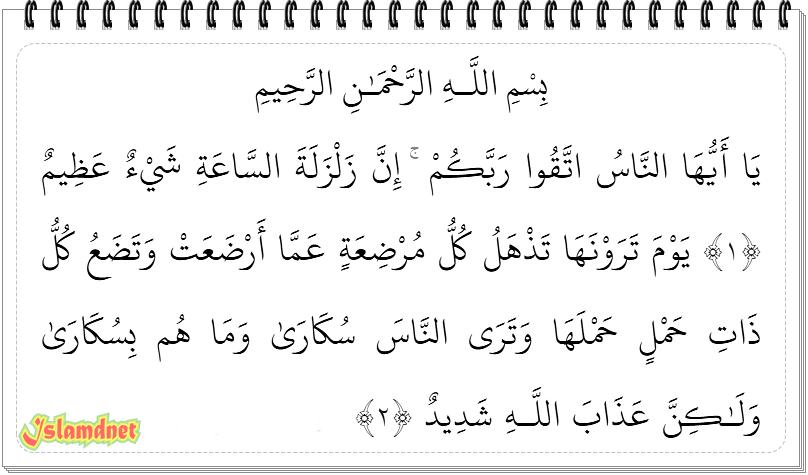 بِسْمِ اللَّـهِ الرَّحْمَـٰنِ الرَّحِيمِ
يَا أَيُّهَا النَّاسُ اتَّقُوا رَبَّكُمْ ۚ إِنَّ زَلْزَلَةَ السَّاعَةِ شَيْءٌ عَظِيمٌ
﴿١﴾ يَوْمَ تَرَوْنَهَا تَذْهَلُ كُلُّ مُرْضِعَةٍ عَمَّا أَرْضَعَتْ وَتَضَعُ كُلُّ
ذَاتِ حَمْلٍ حَمْلَهَا وَتَرَى النَّاسَ سُكَارَىٰ وَمَا هُم بِسُكَارَىٰ
وَلَـٰكِنَّ عَذَابَ اللَّـهِ شَدِيدٌ ﴿٢﴾
Islamdnet